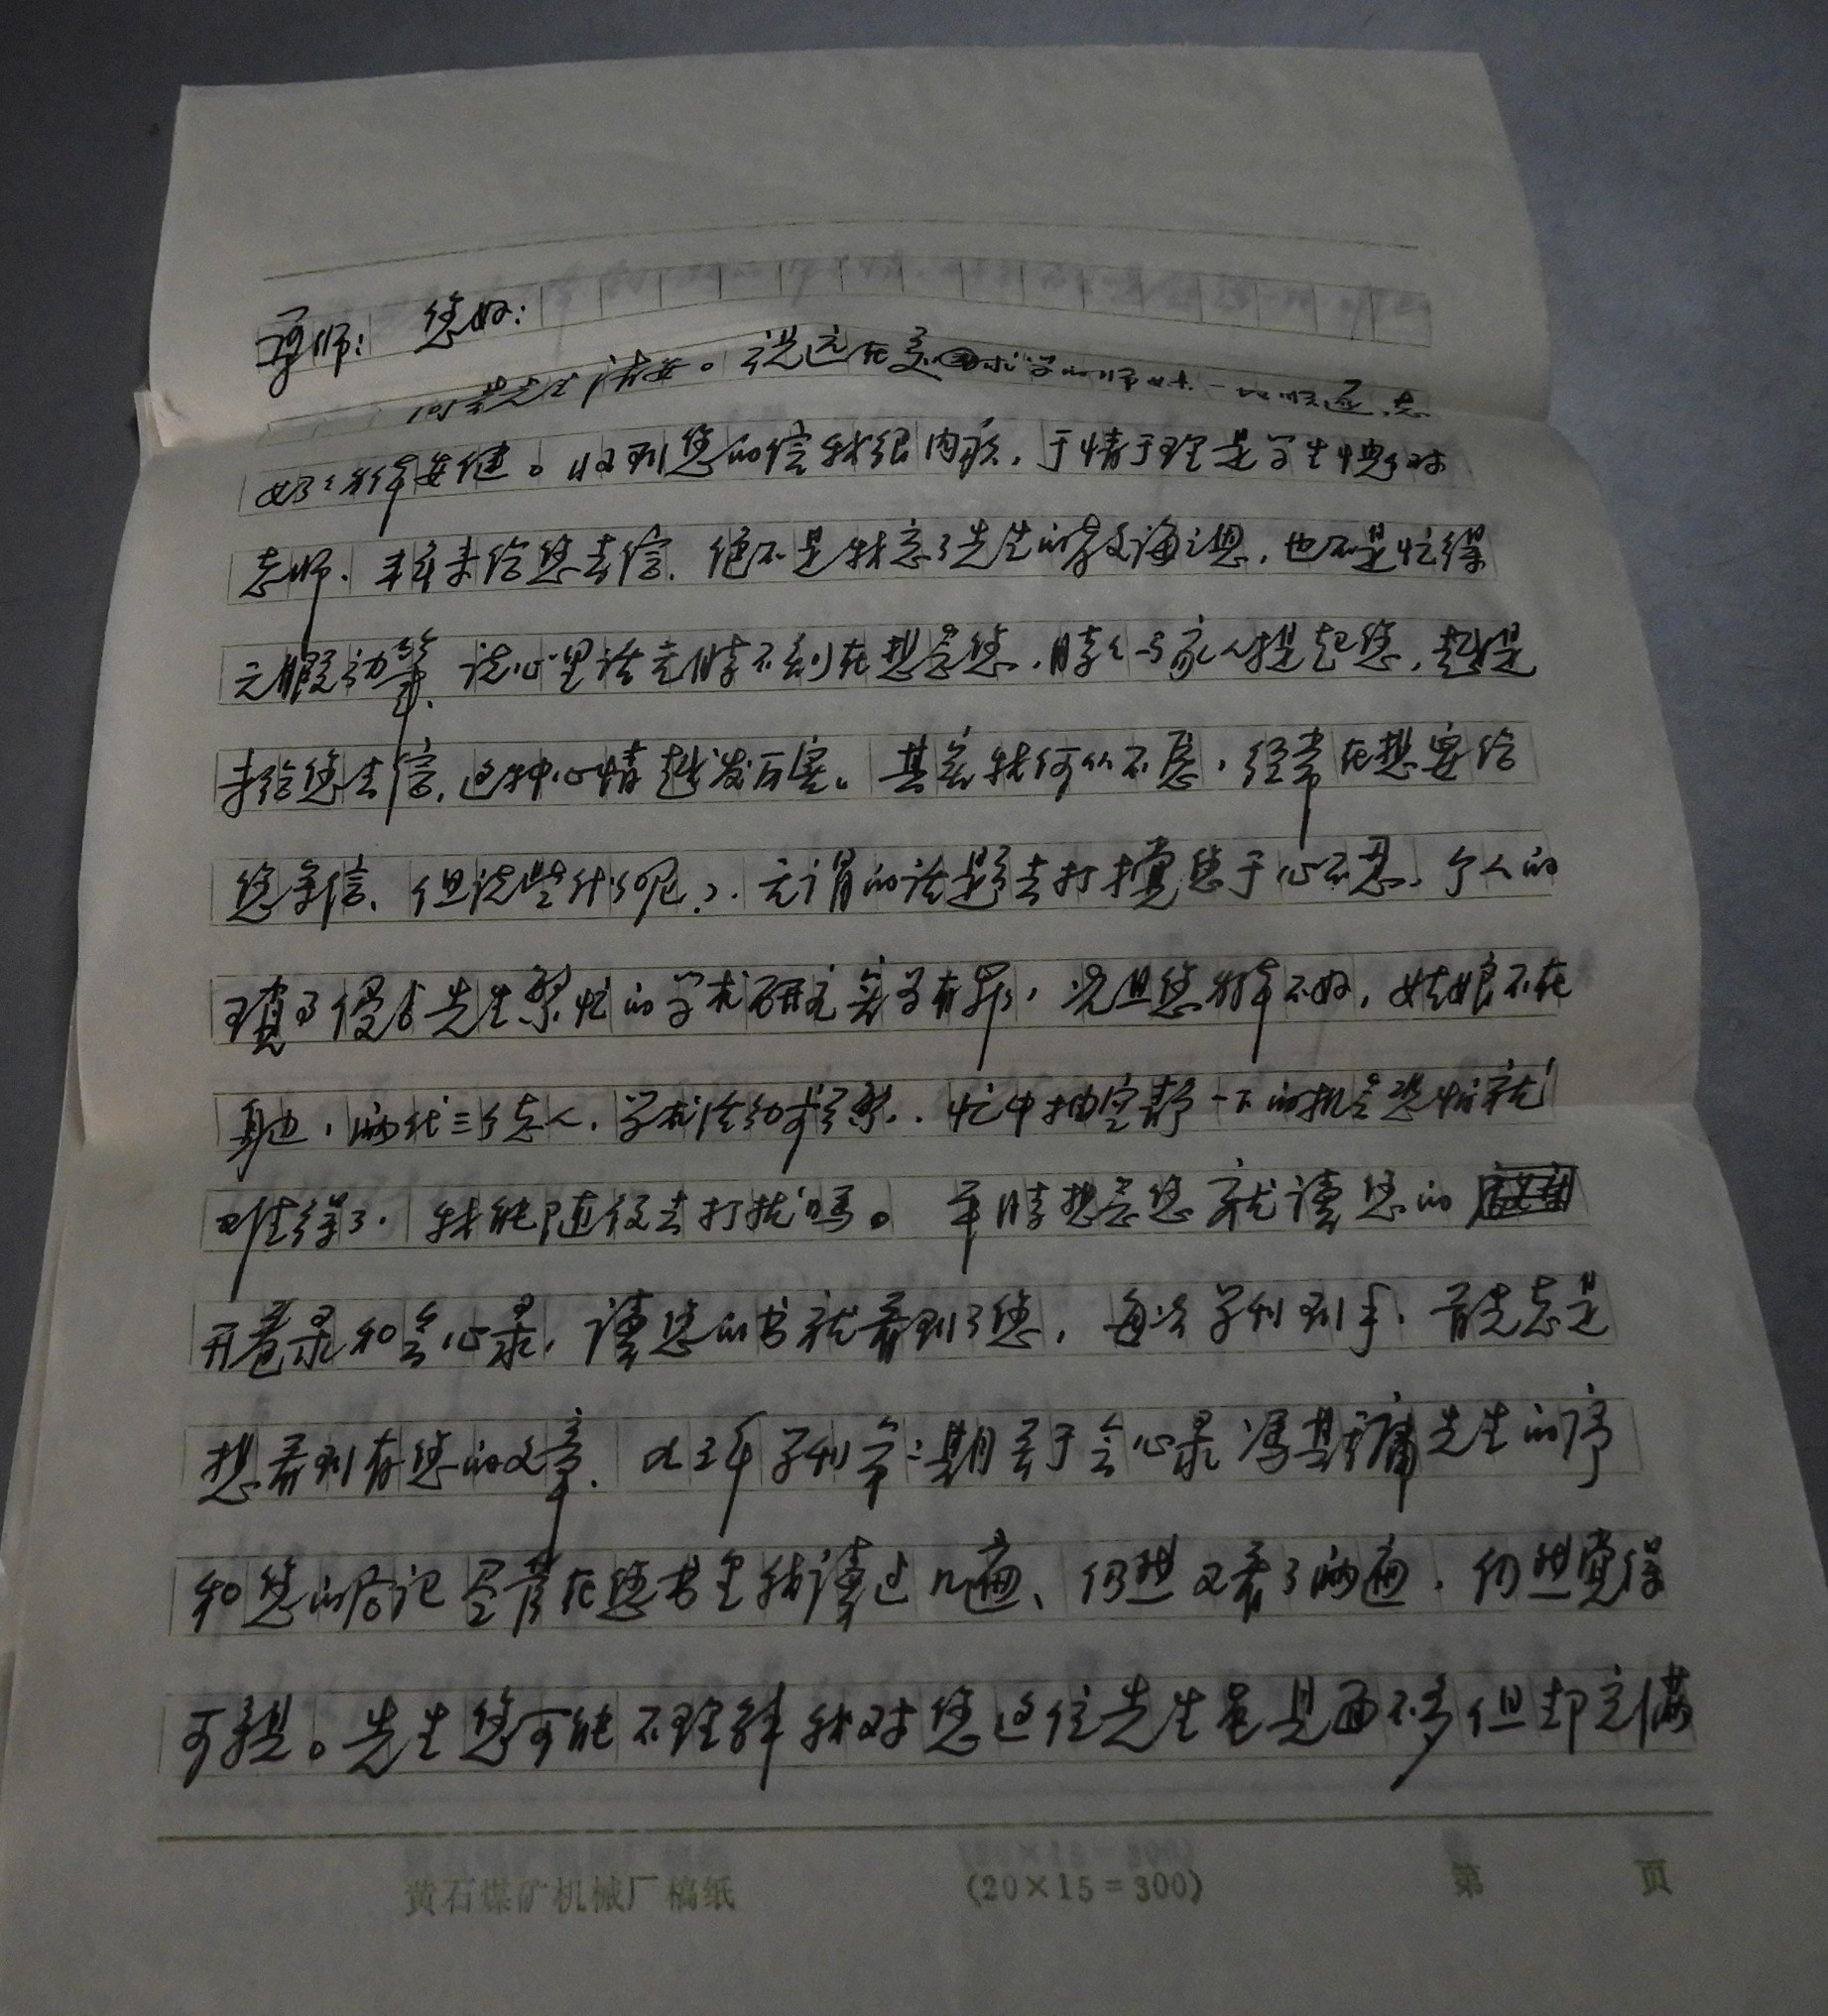 师: 您好:
向先生请安。祝远在美国求学的师妹一切顺遂,老
好好身体安健。收到您的信我很内疚,于情于理是学生愧对
老师、未给您去信,绝不是我忘了先生的教诲之恩,也不是忙得
无暇动笔,说心里话无时不刻在想念您,时时与家人提起您,越是
未给您去信,这种心情越发厉害。其实我何尝不急,经常在想要给
您去信、但说些什么呢?无谓的话题去打搅您于心不忍、个人的
琐事侵占先生繁忙的学术研究实了有罪,况且您身体不好,姑娘不在
身边,两代三个老人,学术活动频繁,忙中抽空静一下的机会恐怕就
难得了,我能随便去打扰吗。平时想念您就读您的
开卷录和会心录,读您的书就看到了您,每次学刊到手,首先总是
想看到有您的文章。 年学刊第二期关于会心录冯其庸先生的序
和您的后记尽管在您书里我读过几遍、仍然又看了两遍,仍然觉得
可亲。先生您可能不理解我对您这位先生虽见面不多但却充满
黄石煤矿机械厂稿纸 (20×15=300) 第 页